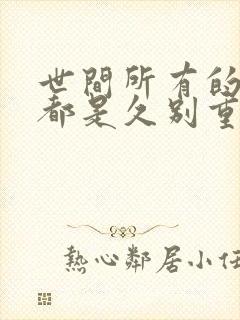 世間所有的
都是久別重
熱心鄰居小任